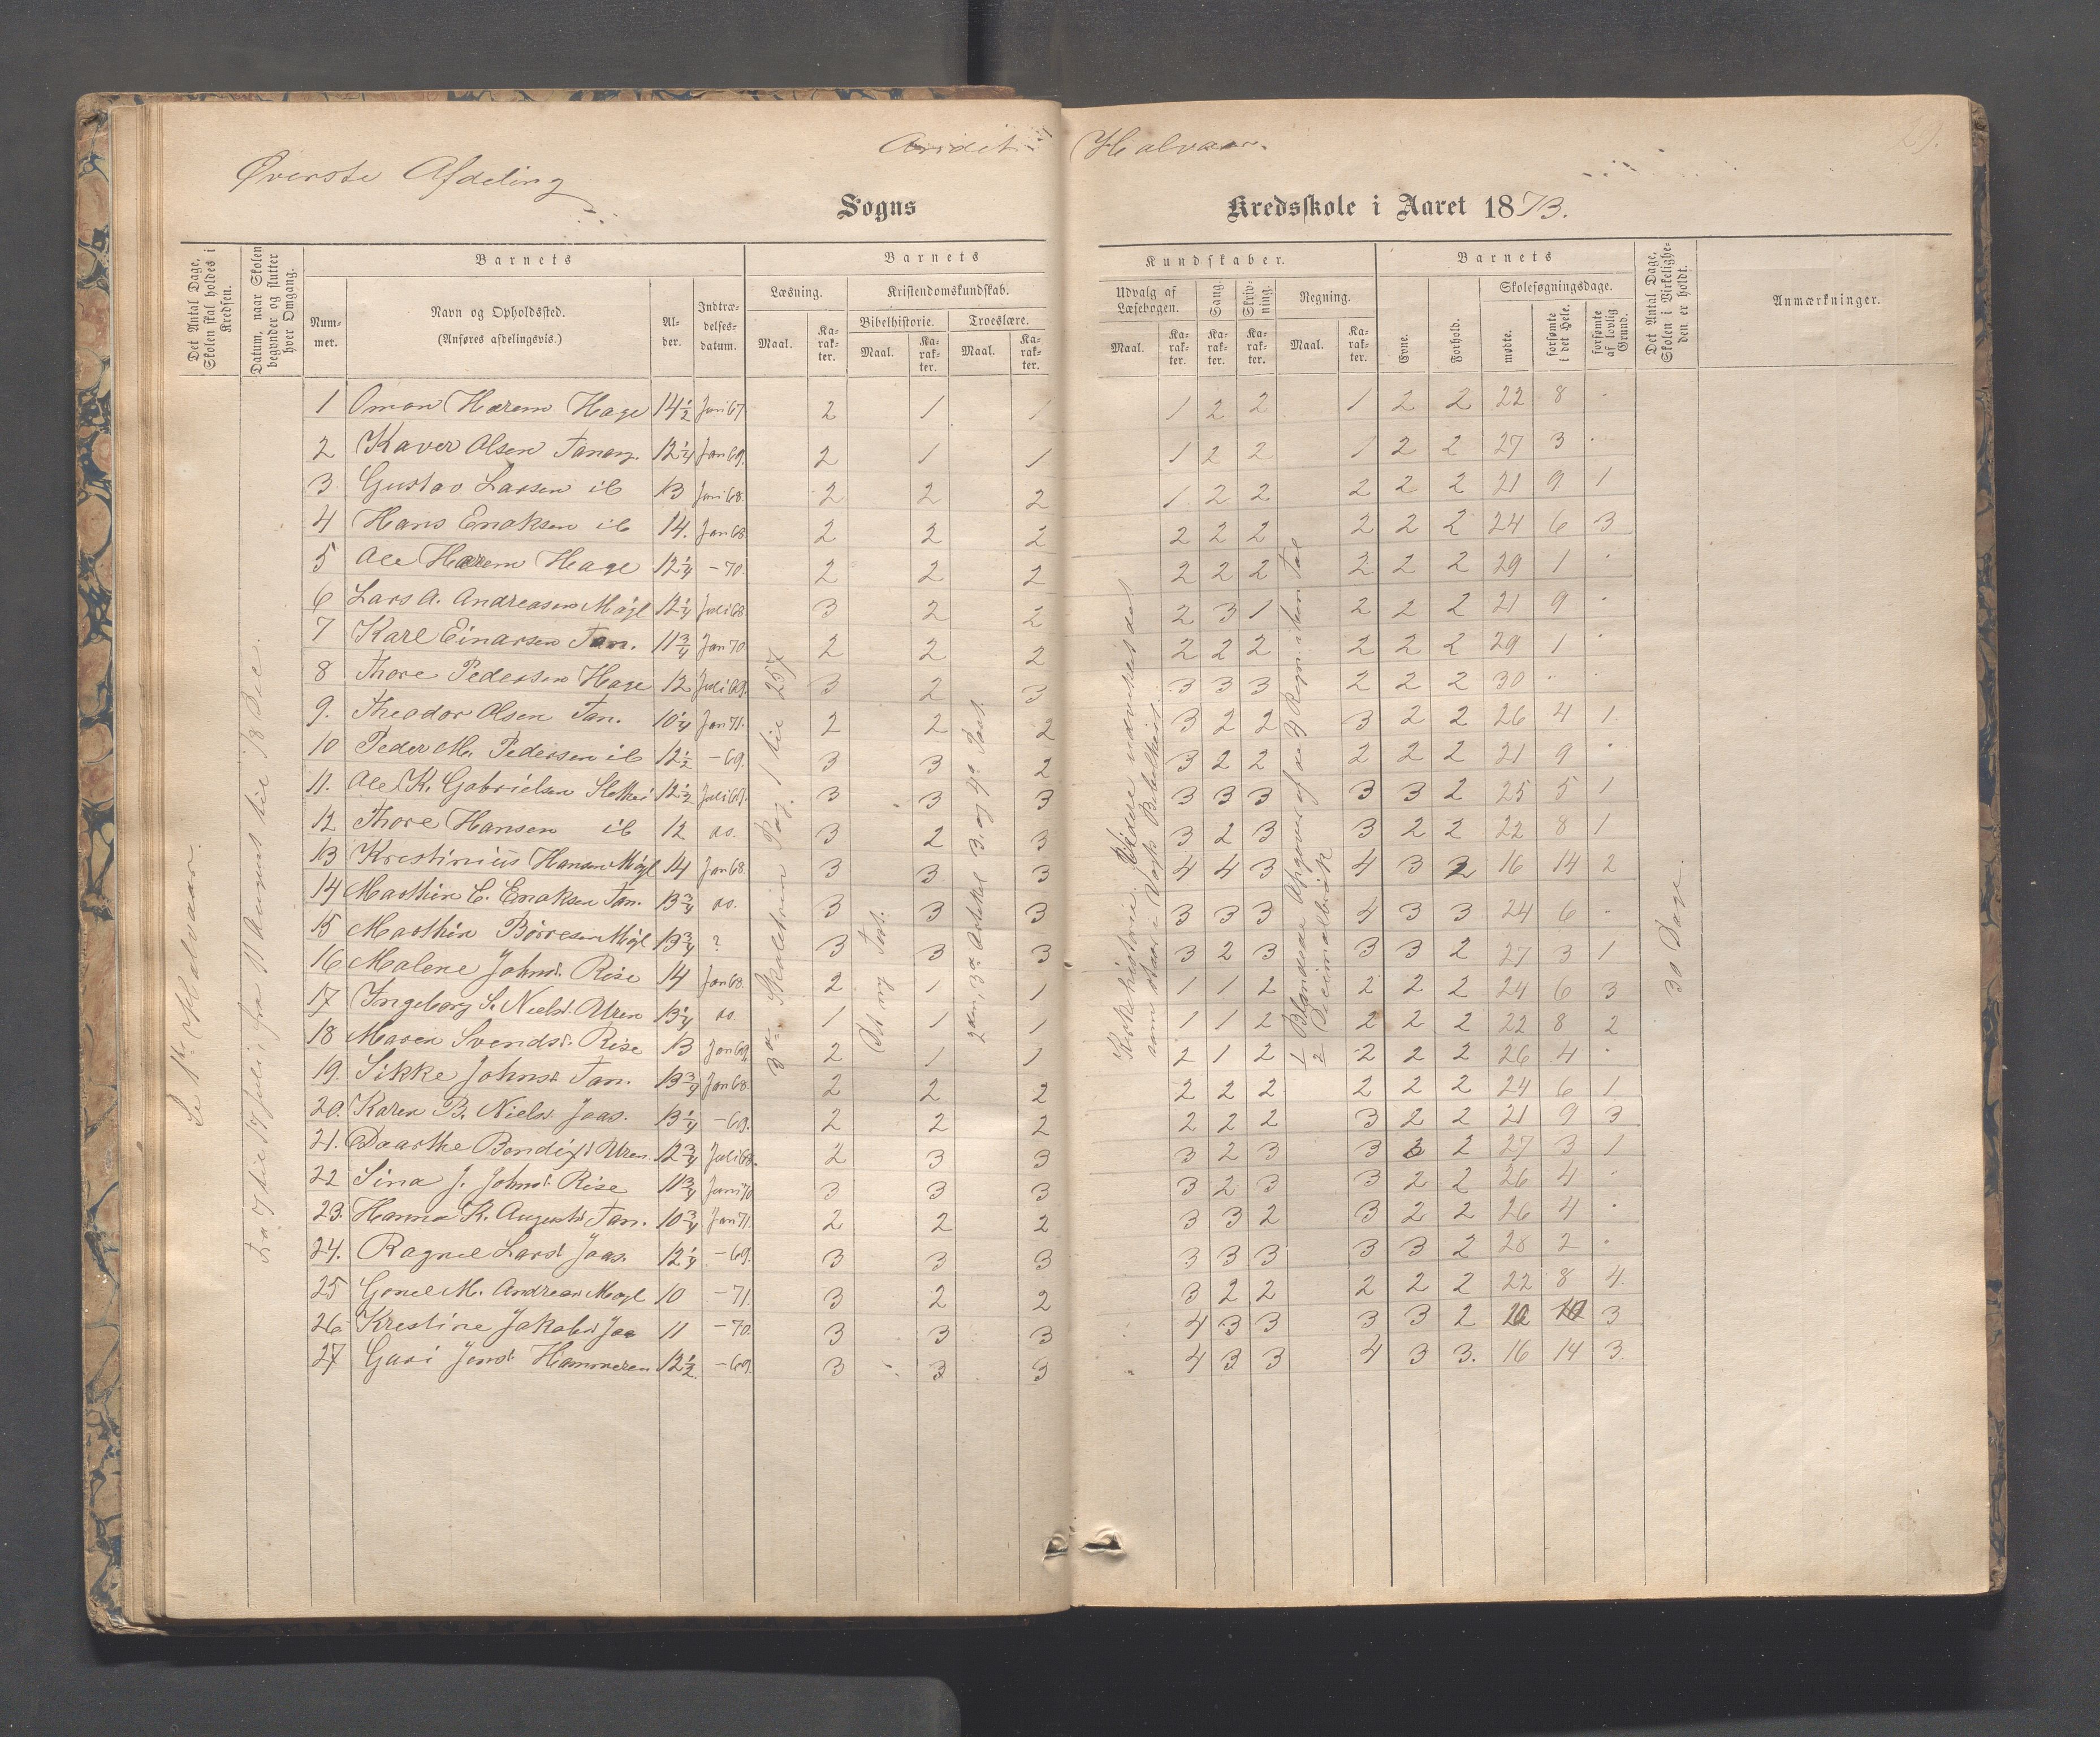 Øverste Afdeling
Sogns
Halvaar.
Kredsskole i Aaret 1873.
Det Antal Dage, Skolen skal holdes i Kredsen.
Datum, naar Skolen begynder og slutter hver Omgang.
Barnets
Num-mer.
Navn og Opholdssted.
(Anføres afdelingsvis.)
Al-der.
Indtræ-delses-datum.
Barnets
Læsning.
Kristendomskundskab.
Bibelhistorie.
Troeslære.
Maal. Ka-rak-ter. Maal. Ka-rak-ter. Maal. Ka-rak-ter.
Kundskaber.
Udvalg af Læsebogen.
Sang.
Skriv-ning.
Regning.
Maal. Ka-rak-ter. Ka-rak-ter. Ka-rak-ter. Maal. Ka-rak-ter.
Barnets
Evne.
Forhold.
Skolesøgningsdage.
mødte.
forsømte i det Hele.
forsømte af lovlig Grund.
Det Antal Dage, Skolen i Virkelighe-den er holdt.
Anmærkninger.
Se 1ste Halvaar.
Fra 7 til 17 Juli, fra 11 August til 18 Dec.
Pag. 1 til 257
2den, 3die Artikel 3. og 4de Part.
Kirkehistorie
som staar i Vogts Bibelhist.
Blandede Opgaver af de 4 Regn. i hen Tal
1/2 Decimalbrøk
30 Dage.
1 Omon Harem Hage 14½ Juni 67 2 1 1 1 2 2 1 2 2 22 8 .
2 Kaver Olsen Tanang. 12¼ Jan 69. 2 1 1 1 2 2 1 2 2 27 3 .
3 Gustav Larsen ib 13 Juni 68. 2 2 2 1 2 2 2 2 2 21 9 1
4 Hans Enoksen ib 14. Jan 68 2 2 2 2 2 2 2 2 2 24 6 3
5 Ole Harem Hage 12¼ -70. 2 2 2 2 2 2 2 2 2 29 1 .
6 Lars A. Andreasen Møgl 12¼ Juli 68 3 2 2 2 3 1 2 2 2 21 9 .
7 Karl Einarsen Tan. 11¾ Jan 70. 2 2 2 2 2 2 2 2 2 29 1 .
8 Thore Pedersen Hage 12 Juli 69. 3 2 3 3 3 3 2 2 2 30 . .
9. Theodor Olsen Tan. 10¼ Jan 71. 2 2 2 3 2 2 3 2 2 26 4 1.
10 Peder M. Pedersen ib 12½ -69. 3 3 2 3 2 2 2 2 2 21 9 .
11. Ole K. Gabrielsen 12½ Juli 67. 3 3 3 3 3 3 3 3 2 25 5 1
12 Thore Hansen ib 12 do. 3 2 3 3 2 3 3 2 2 22 8 1
13 Kristinius Hansen Møgl 14 Jan 68. 3 3 3 4 4 3 4 3 2 16 14 2
14 Marthin C. Enoksen Tan. 13¾ do. 3 3 3 3 3 3 4 3 3 24 6 .
15 Marthin Børresen Møgl 13¾ ? 3 3 3 3 2 3 3 3 2 27 3 1
16 Malene Johnsd. Rise 14 Jan 68. 2 1 1 1 1 2 2 2 2 24 6 3
17 Ingeborg S. Nielsd. Uren 13¼ do. 1 1 1 1 1 2 2 2 2 22 8 2
18 Maren Svendsd. Rise 13 Jan 69 2 1 1 2 1 2 2 2 2 26 4 .
19. Sikke Johnsd. Tan. 13¾ Jan 68. 2 2 2 2 2 2 2 2 2 24 6 1
20. Karen B. Nielsd. Jaas. 13¼ -69. 2 2 2 2 2 2 3 2 2 21 9 3
21. Daarthe Bendixd. Uren. 12¾ Juli 68. 2 3 3 3 2 3 3 3 2 27 3 1
22 Sina J. Johnsd. Rise 11¾ Juni 70 3 3 3 3 2 3 3 2 2 26 4 .
23. Hanna K. Augustsd. Tan. 10¾ Jan 71. 2 2 2 3 3 2 3 2 2 26 4 .
24. Ragnil Larsd. Jaas. 12¼ -69. 3 3 3 3 3 3 3 3 2 28 2 .
25 Gonil M. Andreasd. Møgl 10 -71. 3 2 2 3 2 2 2 2 2 22 8 4.
26 Krestine Jakobsd. Jaa 11 -70. 3 3 3 4 3 3 3 3 2 20 10 3
27 Guri Jensd. Hammeren 12½. -69. 3 3 3 4 3 3 4 3 3. 16 14 3